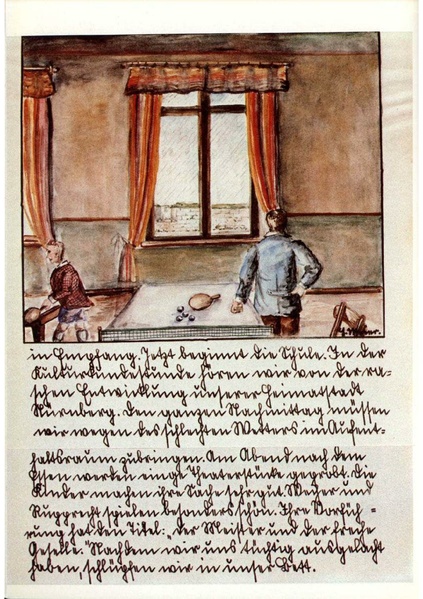 J. Meier.
in Empfang. Jetzt beginnt die Schule. In der
Kulturkundestunde hören wir von der ra-
schen Entwicklung unserer Heimatstadt
Nürnberg. Den ganzen Nachmittag müssen
wir wegen des schlechten Wetters im Aufent-
haltsraum zubringen. Am Abend nach dem
Essen werden einige Theaterstücke geprobt. Die
Kinder machen ihre Sache sehr gut. Meyer und
Rupprecht spielen besonders schön. Ihre Vorfüh-
rung hat den Titel: „Der Meister und der freche
Geselle." Nachdem wir uns tüchtig ausgelacht
haben, schlüpfen wir in unser Bett.